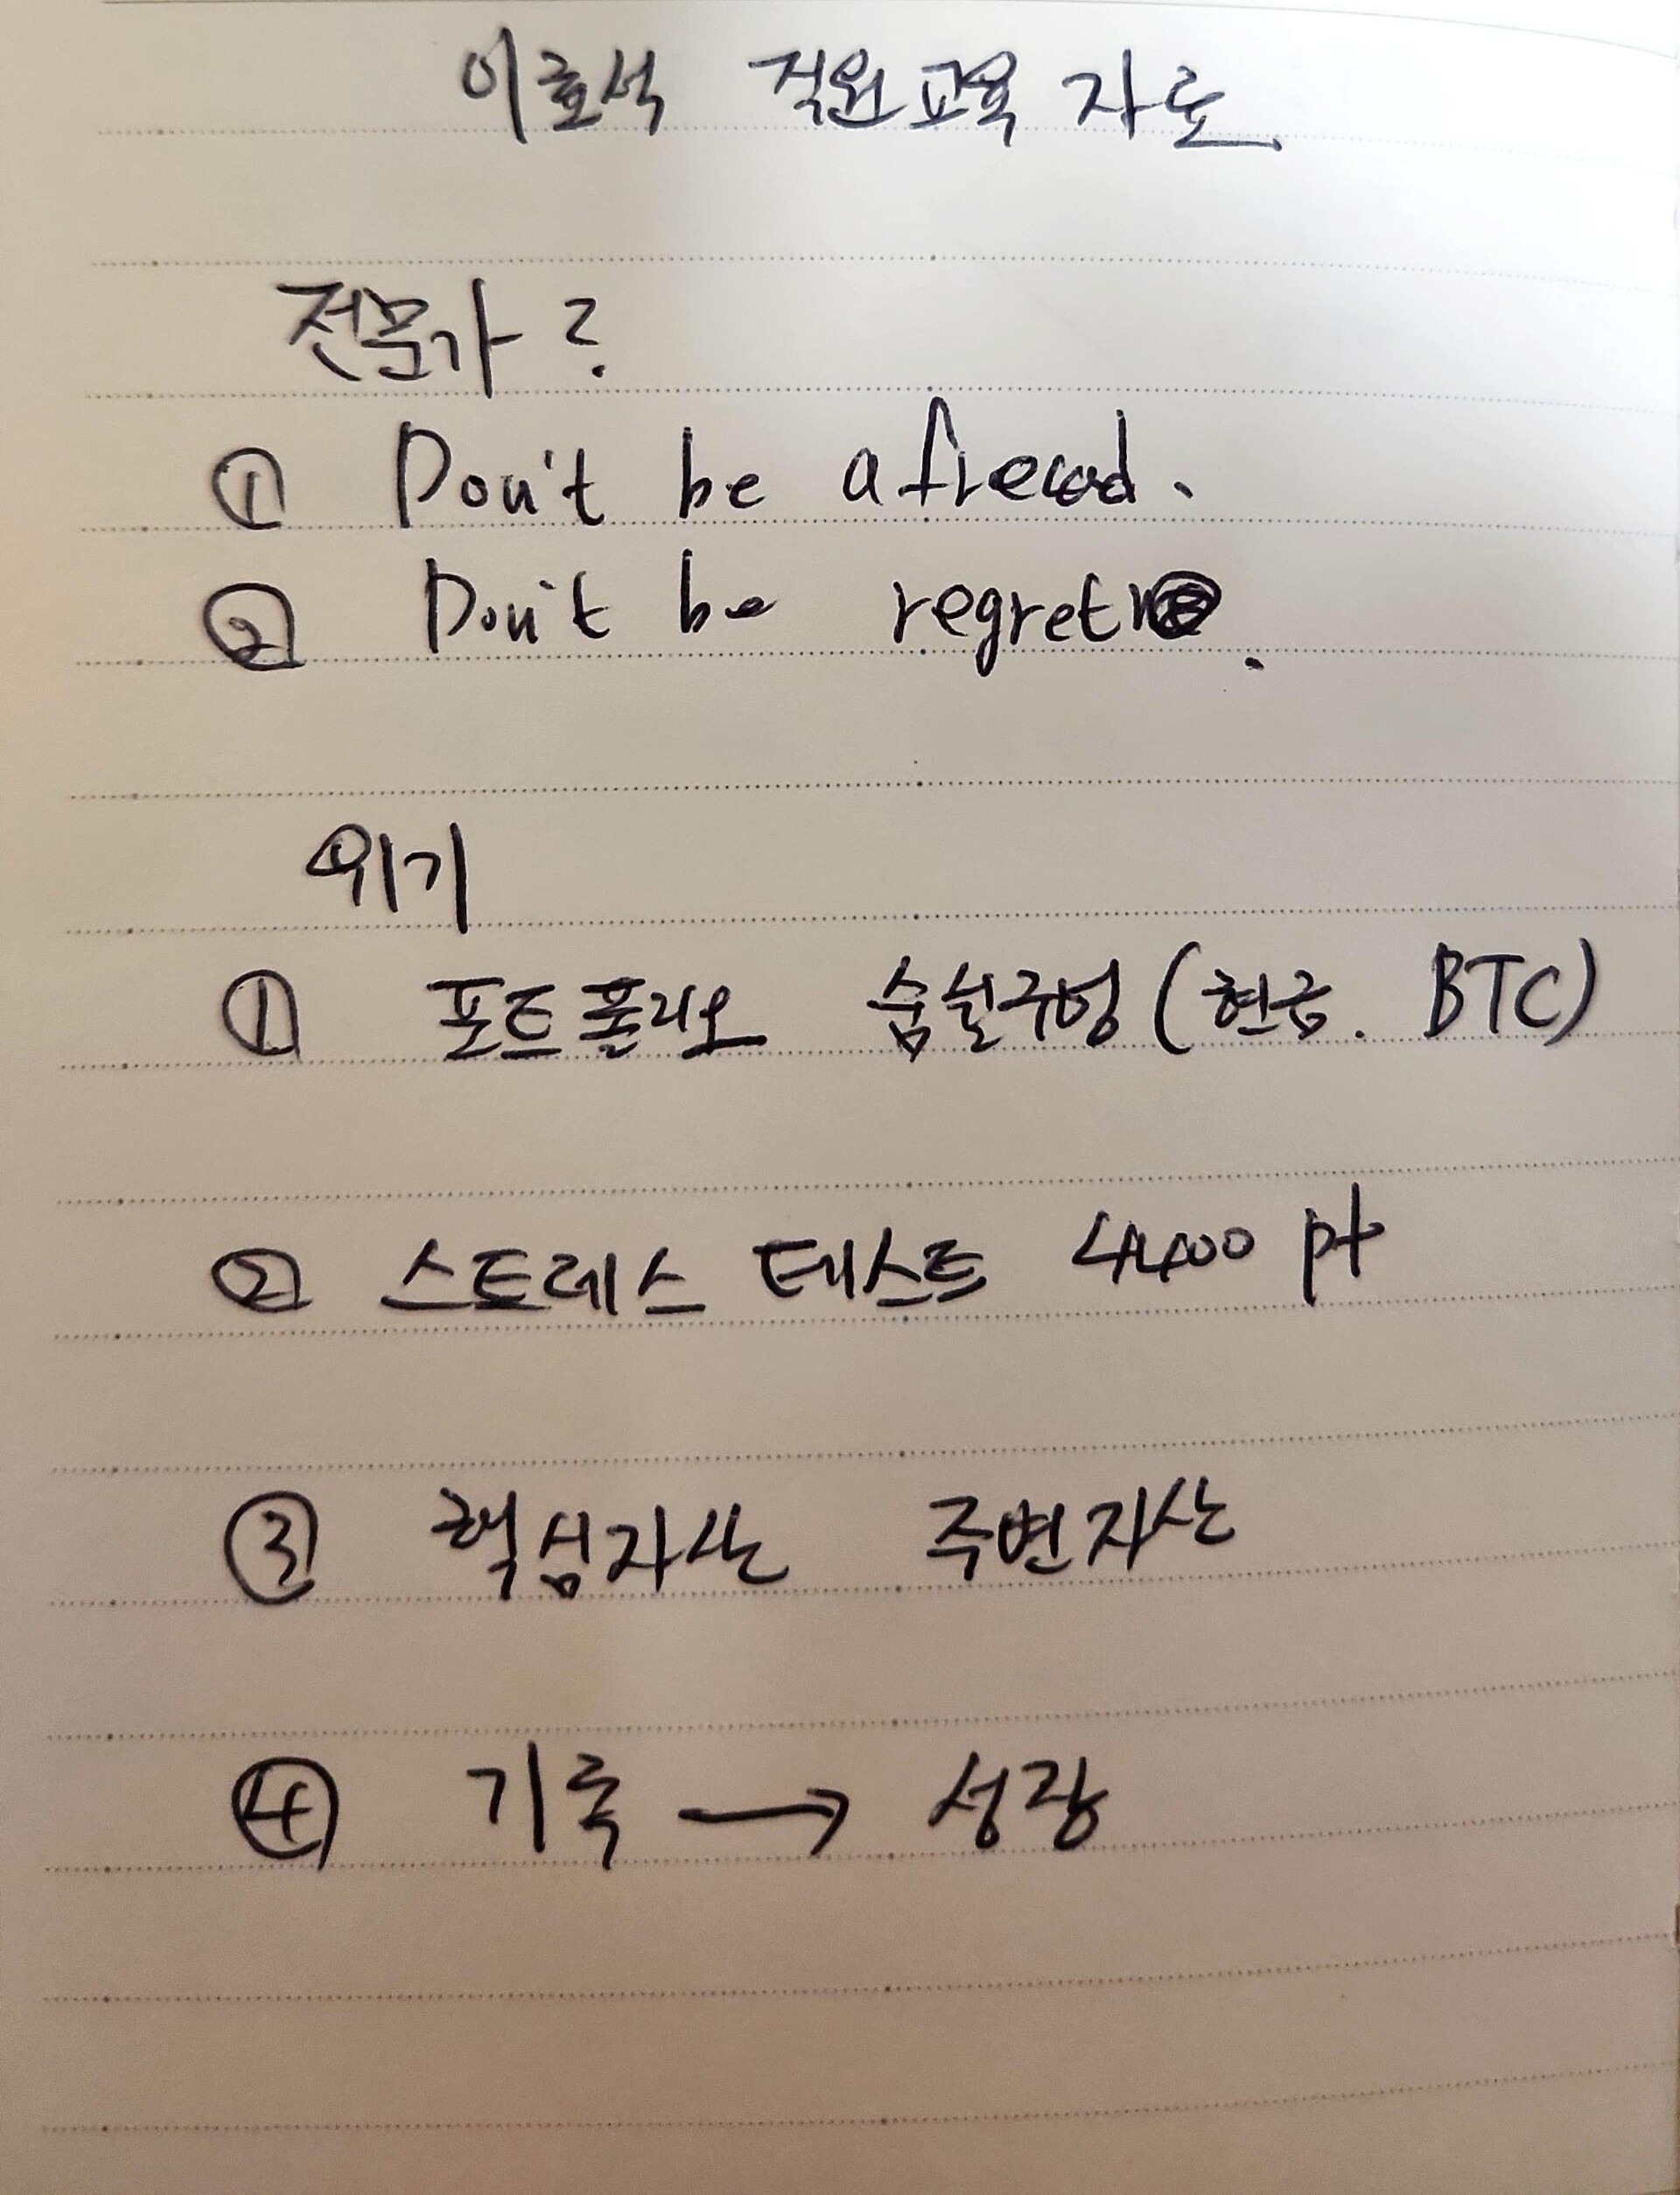 이효석 직원교육 자료
전문가?
① Don't be afreaod.
② Don't be regret
위기
① 포트폴리오 숨쉴구멍 (현금. BTC)
② 스트레스 테스트 4400 pt
③ 핵심자산 주변자산
④ 기록 → 성장